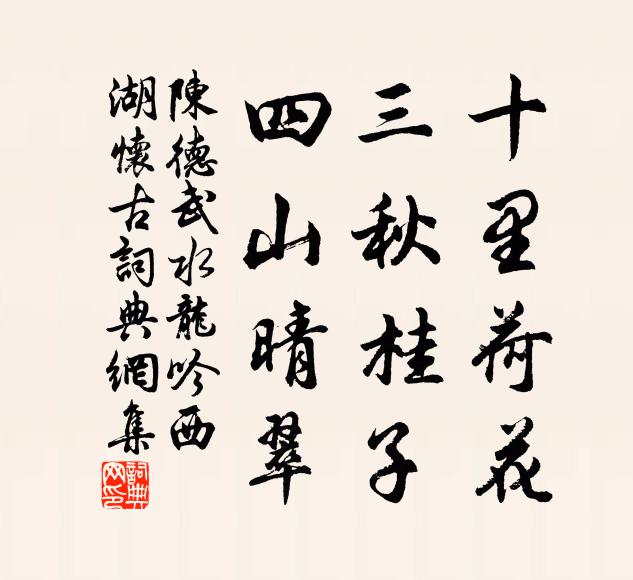 十里荷花
三秋桂子
四山晴翠
陳德武水龍吟西
湖懷古詞典網集
詞典
网印